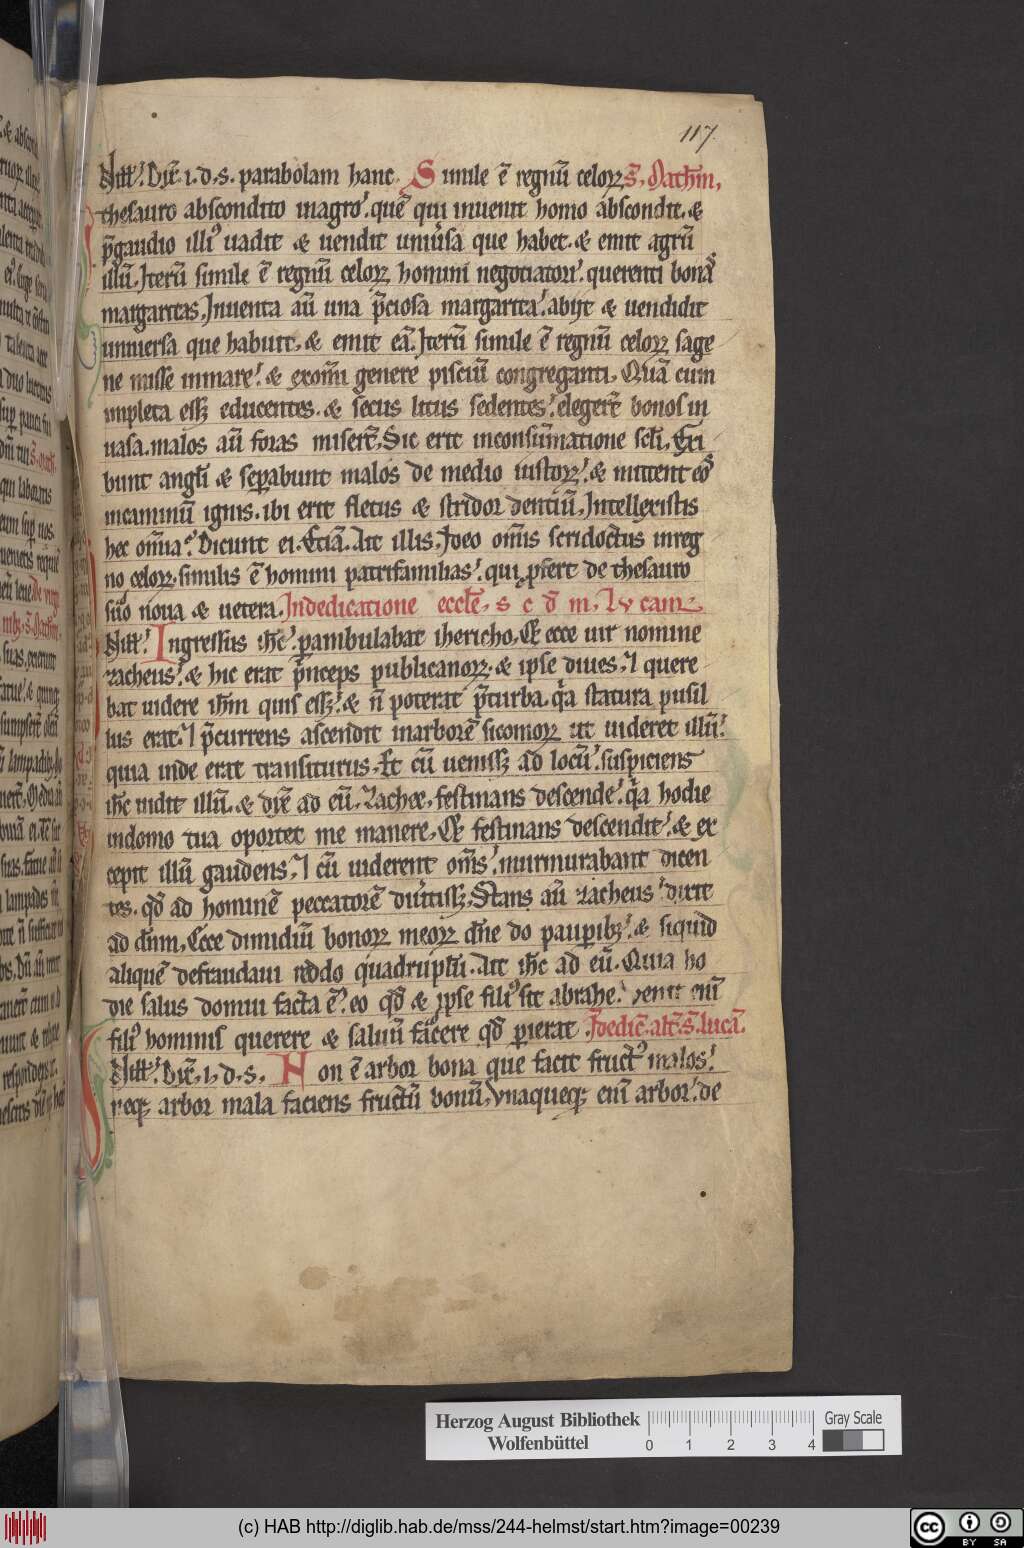 117.
Nitt᷎. Dix̄. i. d. s. parabolam hanc. Simile ē regnū celoꝝ s̄. Mathm̄,
thesauro abscondito inagro. quē qui inuenit homo abscondit. &
p̄gaudio illiꝰ uadit & uendit uniuͥsa que habet. & emit agrū
illū. Iterū simile ē regnū celoꝝ homini negotiatori. querenti bonaˢ
margaritas. Inuenta aū una p̄ciosa margarita. abiit & uendidit
uniuersa que habuit. & emit eā. Iterū simile ē regnū celoꝝ sage
ne misse inmare. & exom̄i genere pisciū congreganti. Quā cum
impleta eſſꝫ educentes. & secus litus sedentes. elegert̄ bonos in
uasa. malos aū foras misert̄. Sic erit inconsūmatione sc̄li. Exi
bunt angl̄i & sep̄abunt malos de medio iustoꝝ. & mittent eoˢ
incaminū ignis. ibi erit fletus & stridor dentiū. Intellexistis
hec om̄ia. Dicunt ei. Etiā. Ait illis. Ideo om̄is scridoctus inreg
no celoꝝ. similis ē homini patrifamilias. qui ꝓfert de thesauro
suo noua & uetera. Indedicatione eccl̄e. s c d̄ m. Lucam
Nitt᷎. Ingressus ih̄c. pambulabat ihericho. Et ecce uir nomine
zacheus. & hic erat p̄nceps publicanoꝝ. & ipse diues. ⁊ quere
bat uidere ih̄m quis eſſꝫ. & n̄ poterat p̄turba. qͥa statura pusil
lus erat. ⁊ p̄currens ascendit inarborē sicomoꝝ ut uideret illū.
quia inde erat transiturus. Et cū ueniſſꝫ ad locū. suspiciens
ih̄c uidit illū. & dix̄ ad eū. Zachee. festinans descende. qͥa hodie
indomo tua oportet me manere. Et festinans descendit. & ex
cepit illū gaudens. ⁊ cū uiderent om̄s. murmurabant dicen
tes. qd̄ ad hominē peccatorē diuͥtiſſꝫ. Stans aū zacheus. dixit
ad dn̄m. Ecce dimidiū bonoꝝ meoꝝ dn̄e do paup̄ibꝫ. & siquid
aliquē defraudaui reddo quadruplū. Ait ih̄c ad eū. Quia ho
die salus domui facta ē. eo qd̄ & ipse filiꝰ sit abrahe. Venit eni̅
filiꝰ hominis querere & saluū facere qd̄ pierat. Indedic̄. alt̄. s̄. lucā.
Nitt᷎. Dix̄. i. d. s. Non ē arbor bona que facit fructꝰ malos.
neqꝫ arbor mala faciens fructū bonū. Vnaqueqꝫ eni̅ arbor. de
Herzog August Bibliothek
Wolfenbüttel
0 1 2 3 4
Gray Scale
(c) HAB http://diglib.hab.de/mss/244-helmst/start.htm?image=00239
cc BY SA